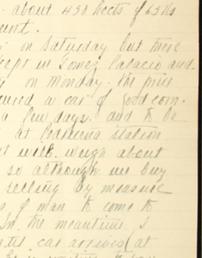 about 430 hects of 65 lbs
on Saturday but there
except in Gomez Palacio and
on Monday. The price
cured a car of good corn.
a few days. and to be
at station
at will weigh about
so although we buy
selling by measure
of man to come to
In the meantime I
car arrives at